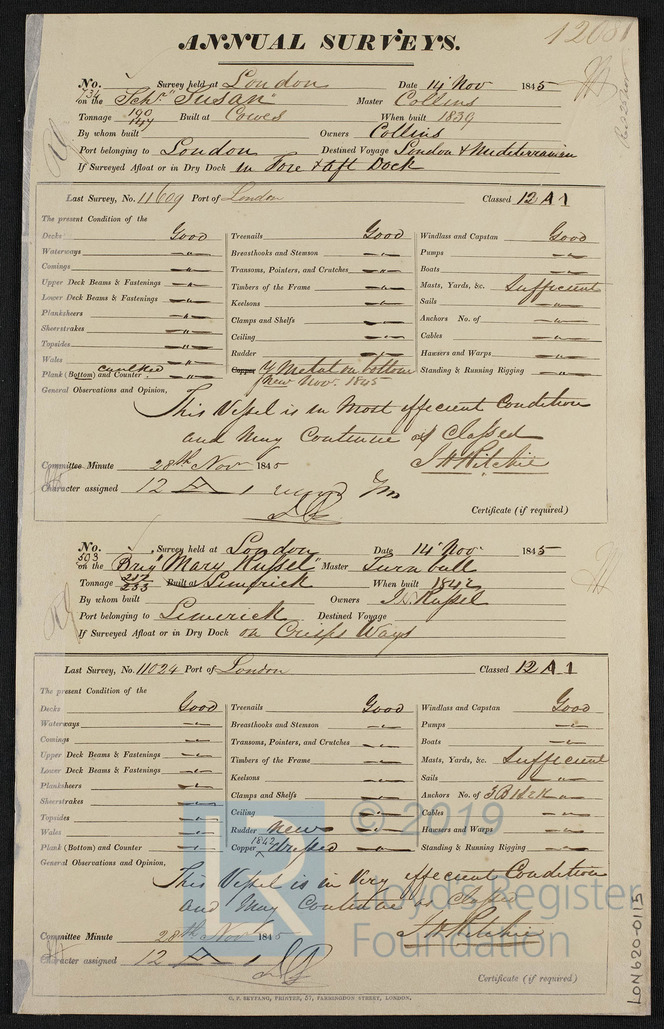 12031
ANNUAL SURVEYS.
No. 734 Survey held at London Date 14 Nov 1845
on the Schr. "Susan" Master Collins
Tonnage 190 147 Built at Cowes When built 1839
By whom built Owners Collins
Port belonging to London Destined Voyage London & Mediterranian
If Surveyed Afloat or in Dry Dock in Fore & aft Dock
Last Survey, No. 11609 Port of London Classed 12 A 1
The present Condition of the
Decks Good Treenails Good Windlass and Capstan Good
Waterways " Breasthooks and Stemson " Pumps "
Comings " Transoms, Pointers, and Crutches " Boats "
Upper Deck Beams & Fastenings " Timbers of the Frame " Masts, Yards, &c. Sufficient
Lower Deck Beams & Fastenings " Keelsons " Sails "
Planksheers " Clamps and Shelfs " Anchors No. of "
Sheerstrakes " Ceiling " Cables "
Topsides " Rudder " Hawsers and Warps "
Wales " Copper Y Metal on bottom Standing & Running Rigging "
Plank (Bottom) and Counter caulked " new Nov. 1845
General Observations and Opinion,
This Vessel is in most efficient Condition
and may Continue as Classed
J H Ritchie
Committee Minute 28th Nov 1845
Character assigned 12 A 1
Certificate (if required)
No. 503 Survey held at London Date 14 Nov 1845
on the Brig "Mary Russel" Master Turnbull
Tonnage Built at Limerick When built 1842
By whom built Owners Russel
Port belonging to Limerick Destined Voyage
If Surveyed Afloat or in Dry Dock on Crisps Ways
Last Survey, No. 11024 Port of London Classed 12 A 1
The present Condition of the
Decks Good Treenails Good Windlass and Capstan Good
Waterways " Breasthooks and Stemson " Pumps "
Comings " Transoms, Pointers, and Crutches " Boats "
Upper Deck Beams & Fastenings " Timbers of the Frame " Masts, Yards, &c. Sufficient
Lower Deck Beams & Fastenings " Keelsons " Sails "
Planksheers " Clamps and Shelfs " Anchors No. of 3B
Sheerstrakes " Ceiling " Cables "
Topsides " Rudder new Hawsers and Warps "
Wales " Copper 1842 Standing & Running Rigging "
Plank (Bottom) and Counter "
General Observations and Opinion,
This Vessel is in Very efficient Condition
and may Continue as Classed
J H Ritchie
Committee Minute 28th Nov 1845
Character assigned 12 A 1
Certificate (if required)
C. F. SEYFANG, PRINTER, 57, FARRINGDON STREET, LONDON.
LON620-0115
© 2019
Lloyd's Register
Foundation